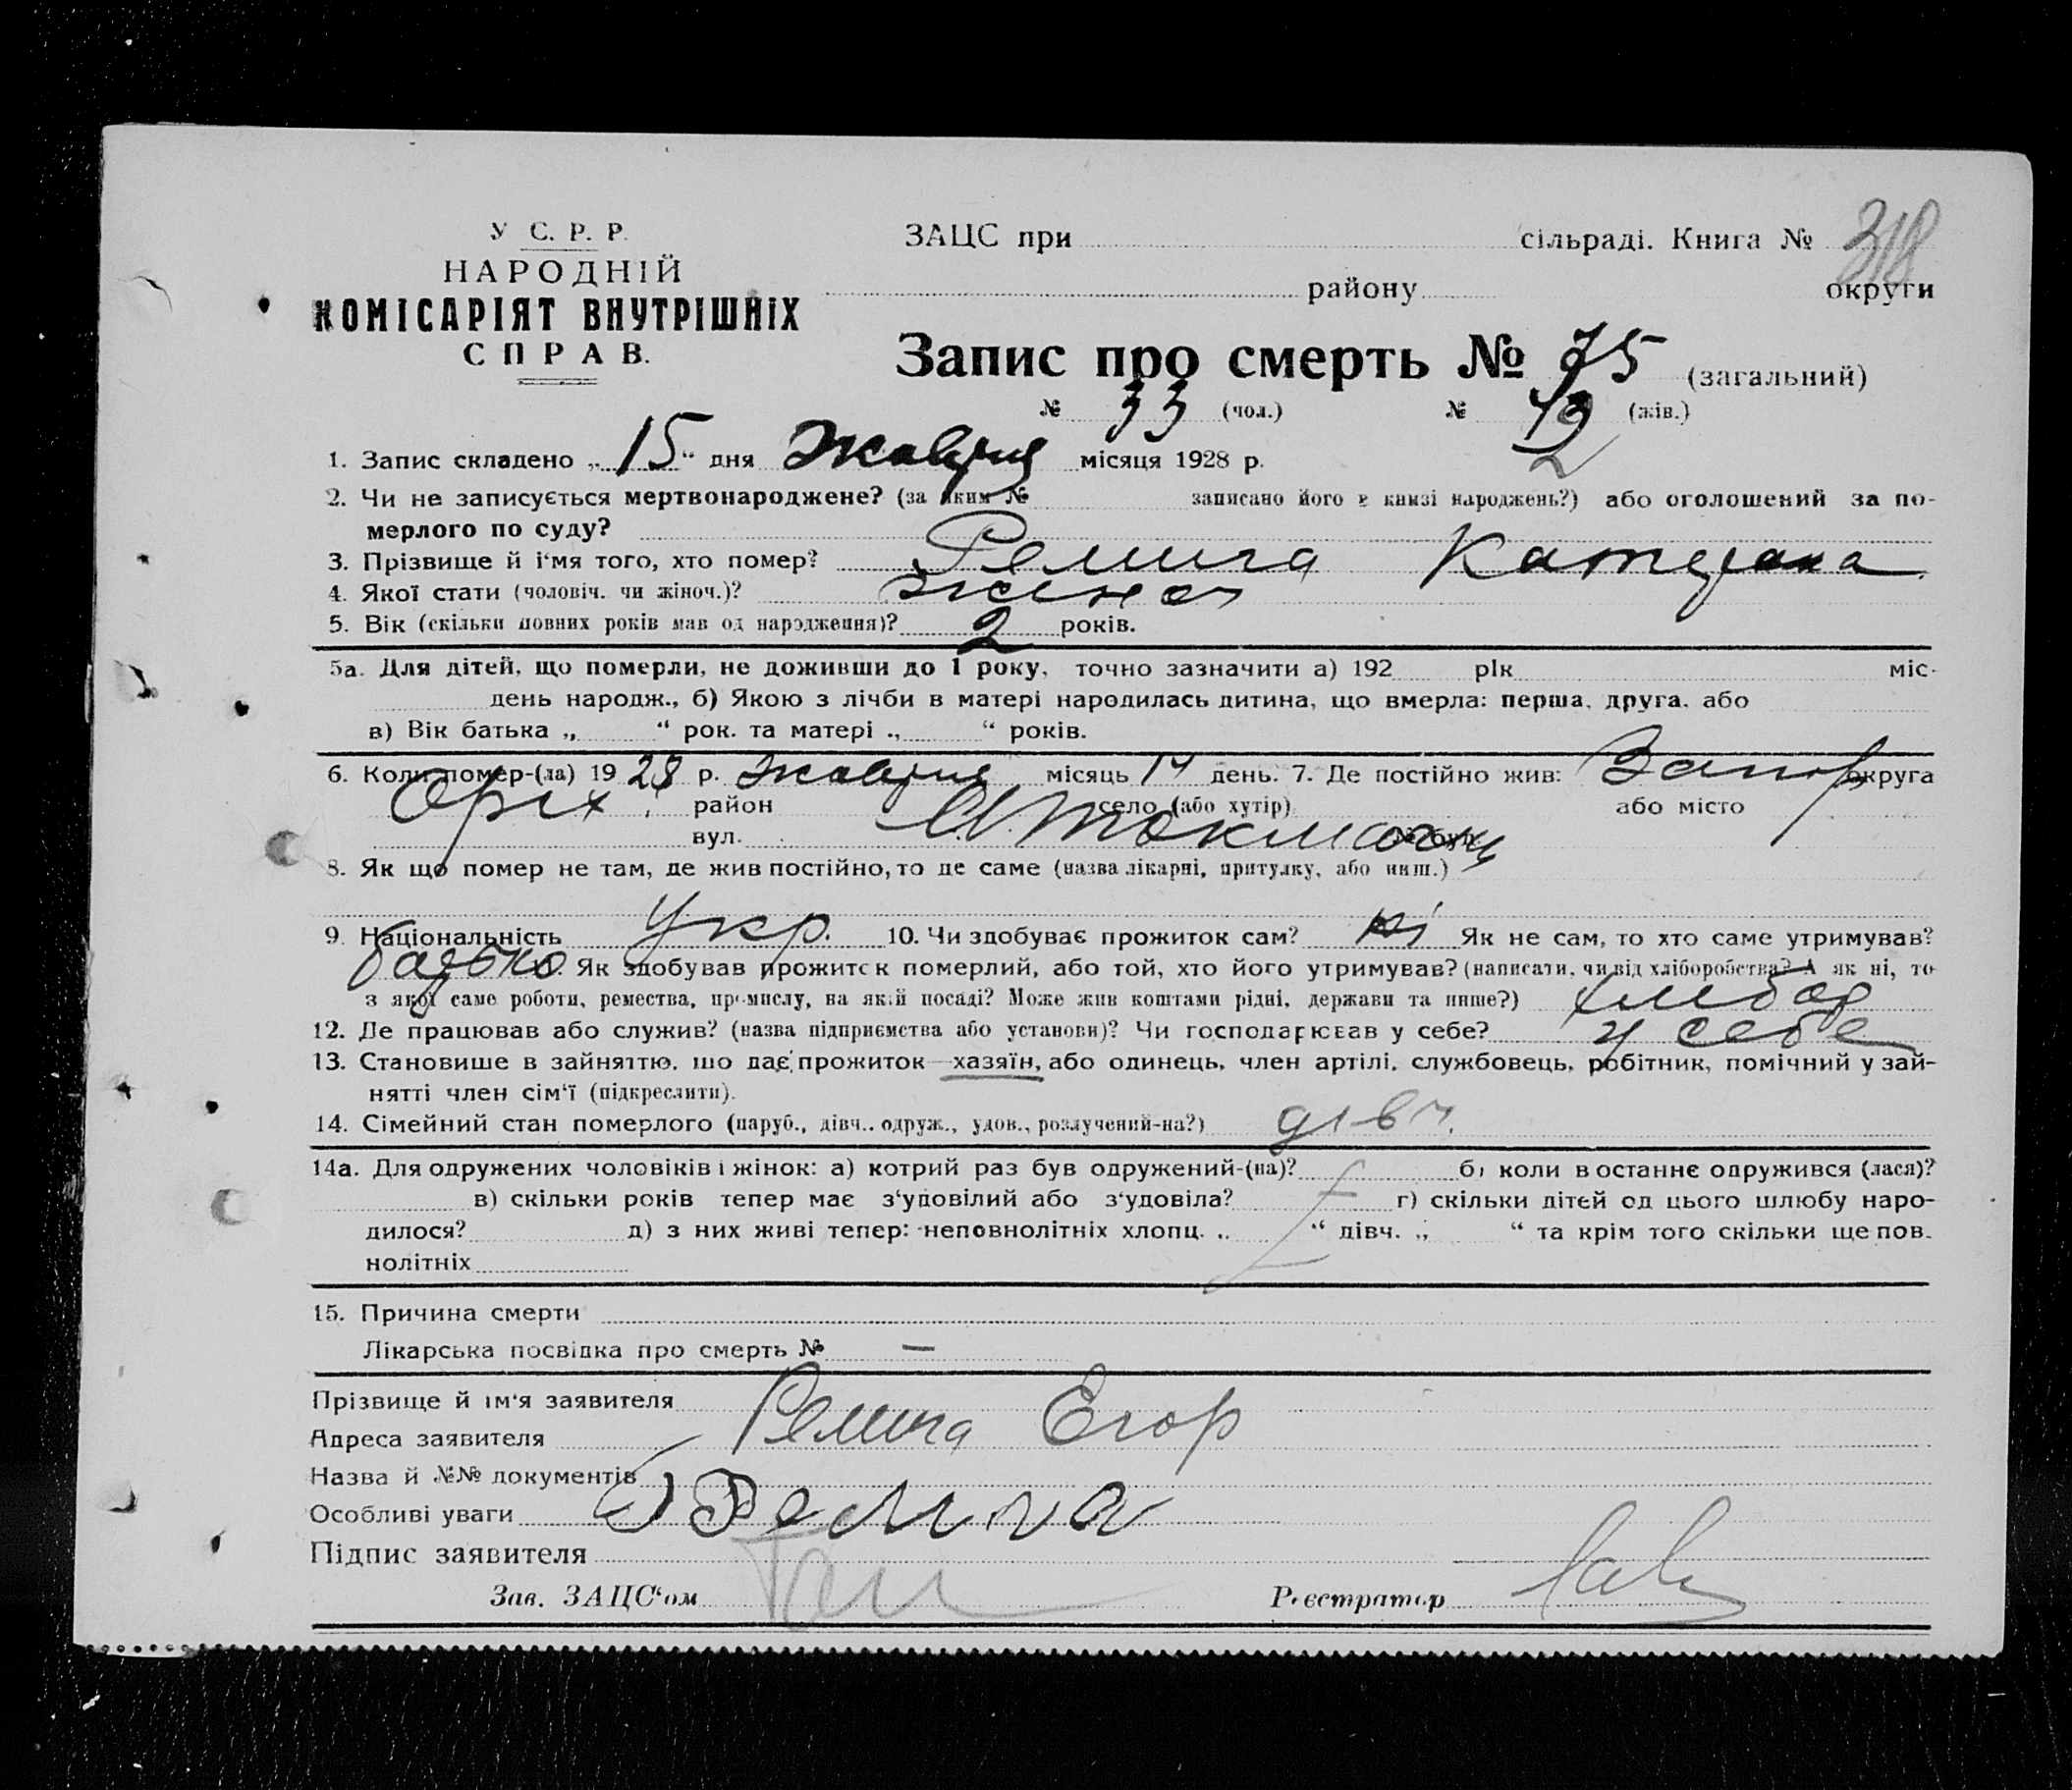 У С. Р. Р.
НАРОДНІЙ
КОМІСАРІЯТ ВНУТРІШНІХ
СПРАВ.
ЗАЦС при сільраді. Книга № 318
району округи
Запис про смерть № 75 (загальний)
№ 33 (чол.) № 42 (жів.)
1. Запис складено „ 15 “ дня Жовтня місяця 1928 р.
2. Чи не записується мертвонароджене? (за яким № записано його в книзі народжень?) або оголошений за по-
мерлого по суду?
3. Прізвище й і‘мя того, хто помер? Ремига Катерина
4. Якої стати (чоловіч. чи жіноч.)? жіноч
5. Вік (скільки повних років мав од народження)? 2 років.
5а. Для дітей, що померли, не доживши до 1 року, точно зазначити а) 192 рік міс-
день народж., б) Якою з лічби в матері народилась дитина, що вмерла: перша, друга, або
в) Вік батька „ “ рок. та матері „ “ років.
6. Коли помер-(ла) 19 28 р. жовтня місяць 14 день. 7. Де постійно жив: Запор округа
Оріх район село (або хутір) або місто
вул. М. Токмачц
8. Як що помер не там, де жив постійно, то де саме (назва лікарні, притулку, або инш.)
9. Національність Укр. 10. Чи здобуває прожиток сам? ні Як не сам, то хто саме утримував?
батько Як здобував прожиток померлий, або той, хто його утримував? (написати, чи від хліборобства? А як ні, то
з якої саме роботи, ремества, промислу, на якій посаді? Може жив коштами рідні, держави та инше?) хлібор
12. Де працював або служив? (назва підприємства або установи)? Чи господарював у себе? у себе
13. Становище в зайняттю, що дає прожиток—хазяїн, або одинець, член артілі, службовець, робітник, помічний у зай-
нятті член сім‘ї (підкреслити).
14. Сімейний стан померлого (паруб., дівч., одруж., удов., розлучений-на?) дівч.
14а. Для одружених чоловіків і жінок: а) котрий раз був одружений-(на)? б) коли востаннє одружився (лася)?
в) скільки років тепер має з‘удовілий або з‘удовіла? г) скільки дітей од цього шлюбу наро-
дилося? д) з них живі тепер: неповнолітніх хлопц. „ “ дівч. „ “ та крім того скільки ще пов.
нолітніх
15. Причина смерти
Лікарська посвідка про смерть № —
Прізвище й ім‘я заявителя Ремига Егор
Адреса заявителя
Назва й №№ документів
Особливі уваги
Е Ремига
Підпис заявителя
Зав. ЗАЦС‘ом
Реєстратор